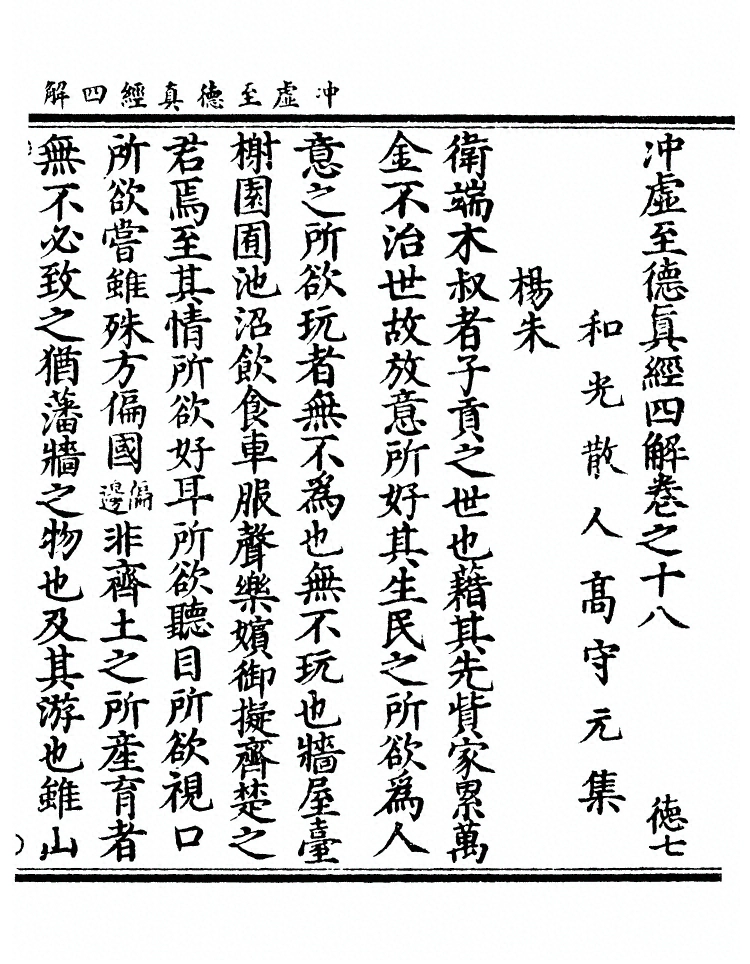 冲虛至德真經四解
冲虛至德眞經四解卷之十八 德七
和光散人高守元集
楊朱
衛端木叔者子貢之世也藉其先貲家累萬
金不治世故放意所好其生民之所欲爲人
意之所欲玩者無不爲也無不玩也牆屋臺
榭園囿池沼飲食車服聲樂嬪御擬齊楚之
君焉至其情所欲好耳所欲聽目所欲視口
所欲嘗雖殊方偏國偏邊非齊土之所産育者
無不必致之猶藩牆之物也及其游也雖山